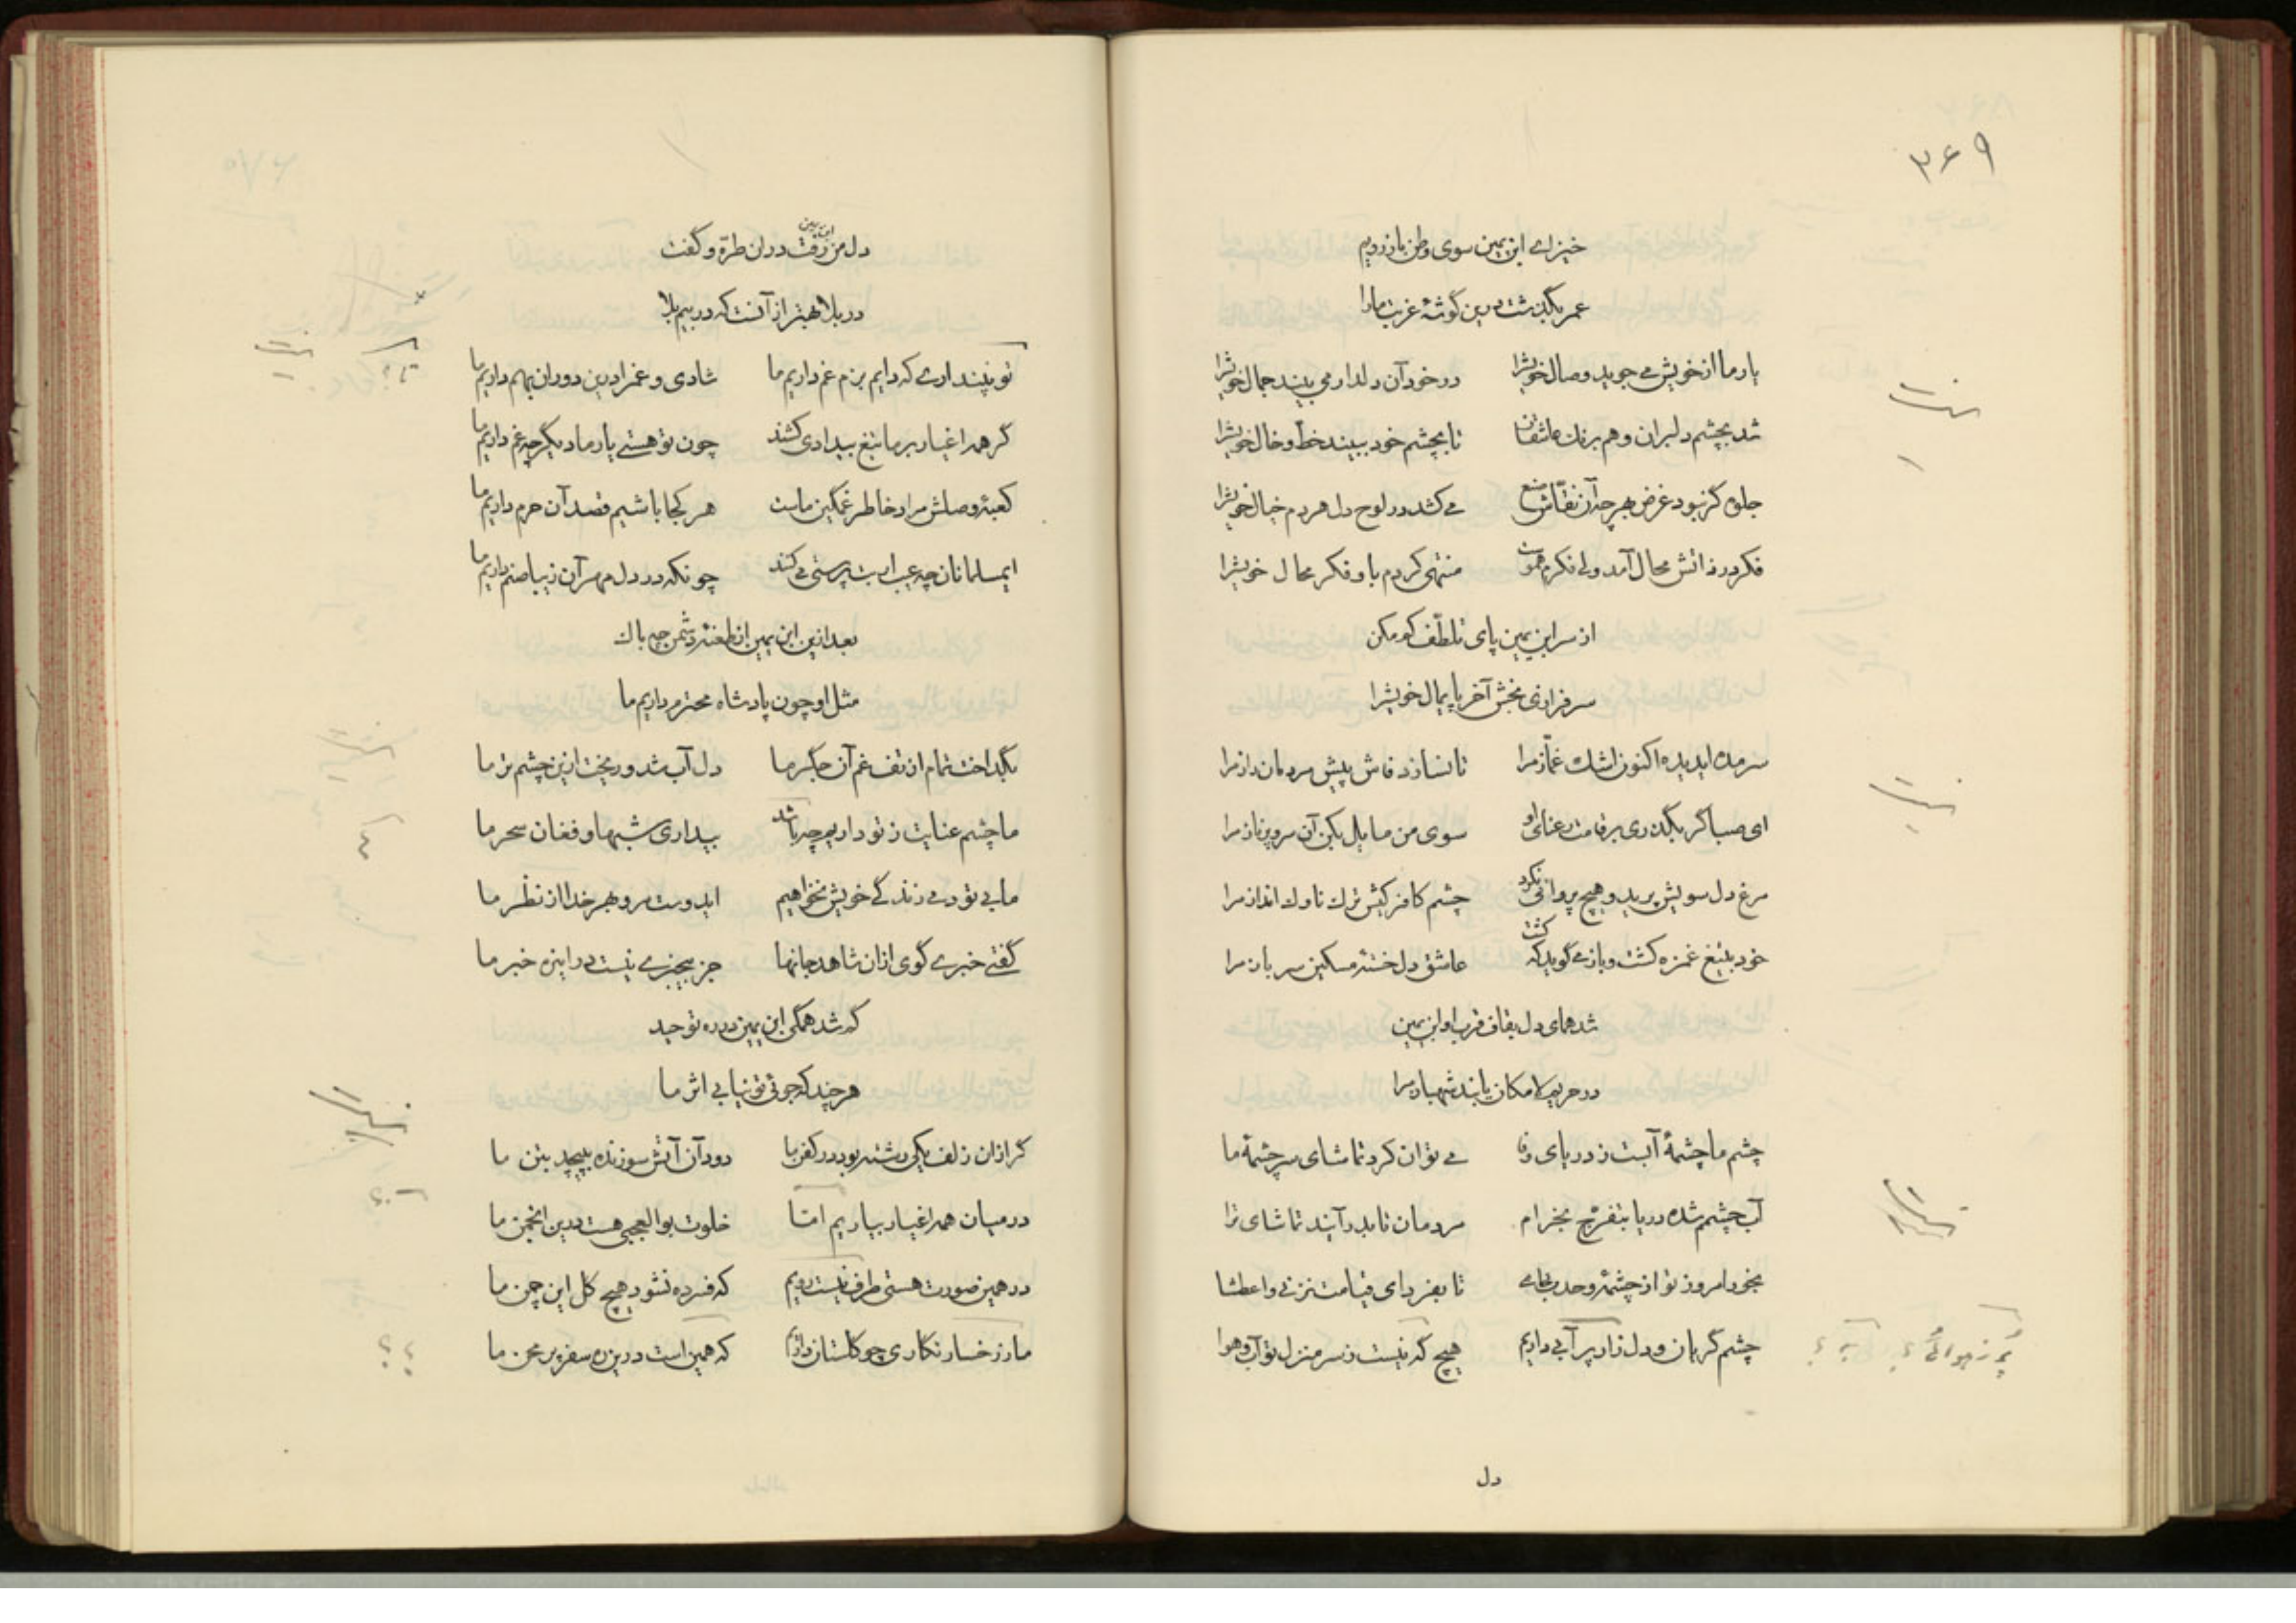 ۳۶۹
خیز اے ابن یمین سوی وطن باز رویم
عمر بگذشت درین گوشهٔ غربت مارا
یار ما از خویش مے جوید وصال خویشرا در خود آن دلدار می بیند جمال خویشرا
شد بچشم دلبران و هم برنك عاشقان تا بچشم خود ببیند خط و خال خویشرا
جلوه گر نبود غرض هرچه آن نقاش صنع مے کشد در لوح دل هر دم خیال خویشرا
فکر در ذاتش محال آمد ولی فکرم منتهی کردم باو فکر محال خویشرا
از سر ابن یمین پای تلطف کم مکن
سرفرازی بخش آخر پایمال خویشرا
سرمده ایدیده اکنون اشك غماز مرا تا نسازد فاش پیش مردمان راز مرا
ای صبا گر بگذری بر قامت رعنای او سوی من مایل بکن آن سرو پر ناز مرا
مرغ دل سویش پرید و هیچ پروائی نکرد چشم کافر کیش ترك ناوك انداز مرا
خود بتیغ غمزه کشت و باز مے گوید که کشت عاشق دل خستهٔ مسکین سرباز مرا
شد همای دل بقاف قرب او ابن یمین
در حریم لامکان یابند شهباز مرا
چشم ما چشمهٔ آبست ز دریای وفا مے توان کرد تماشای سرچشمهٔ ما
آب چشمم شده دریا بتفرج بخرام مردمان تا بدر آیند تماشای ترا
بخور امروز تو از چشمهٔ وحدت جامے تا بفردای قیامت نزنی واعطشا
چشم گریان و دل زار پر آبی داریم هیچ که نیست ز سر منزل تو آب و هوا
دل
دل من رفت در ان طرّه و گفت
ابن یمین
در بلا بهتر از آنست که در بیم بلا
تو نپندارے که دایم بزم غم داریم ما شادی و غم را درین دوران بهم داریم ما
گر همه اغیار بر ما تیغ بیدادی کشند چون تو هستے یار ما دیگر چه غم داریم ما
کعبهٔ وصلش مراد خاطر غمگین ماست هر کجا باشیم قصد آن حرم داریم ما
ایمسلمانان چه عیب ار بت پرستی می کند چونکه در دل مهر آن زیبا صنم داریم ما
بعد ازین ابن یمین از طعنهٔ دشمن چه باك
مثل او چون پادشاه محترم داریم ما
بگداخت تمام از تف غم آن جگر ما دل آب شد و ریخت ازین چشم تر ما
ما چشم عنایت ز تو داریم چه باشد بیداری شبها و فغان سحر ما
ما بے تو دمے زندگے خویش نخواهیم ایدوست مرو بهر خدا از نظر ما
گفتے خبرے گوی ازان شاهد جانها جز بیخبرے نیست در اینره خبر ما
گم شد همگی ابن یمین در ره توحید
هر چند که جوئی تو نیابے اثر ما
گر ازان زلف یکی رشته بود در کفن ما دود آن آتش سوزنده بپیچد بتن ما
در میان همه اغیار بیاریم امّا خلوت بوالعجبی هست درین انجمن ما
در همین صورت هستی طرف نیست رویم که فسرده نشود هیچ گل این چمن ما
ما ز رخسار نگاری چو گلستان داریم که همین است درین ره سفر پر محن ما